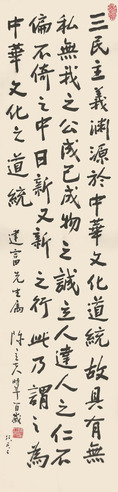 三民主義淵源於中華文化道統故具有無
私無我之公成己成物之誠立人達人之仁不
偏不倚之中日新又新之行此乃謂之為
中華文化之道統
建富先生屬
陳立夫時年百歲